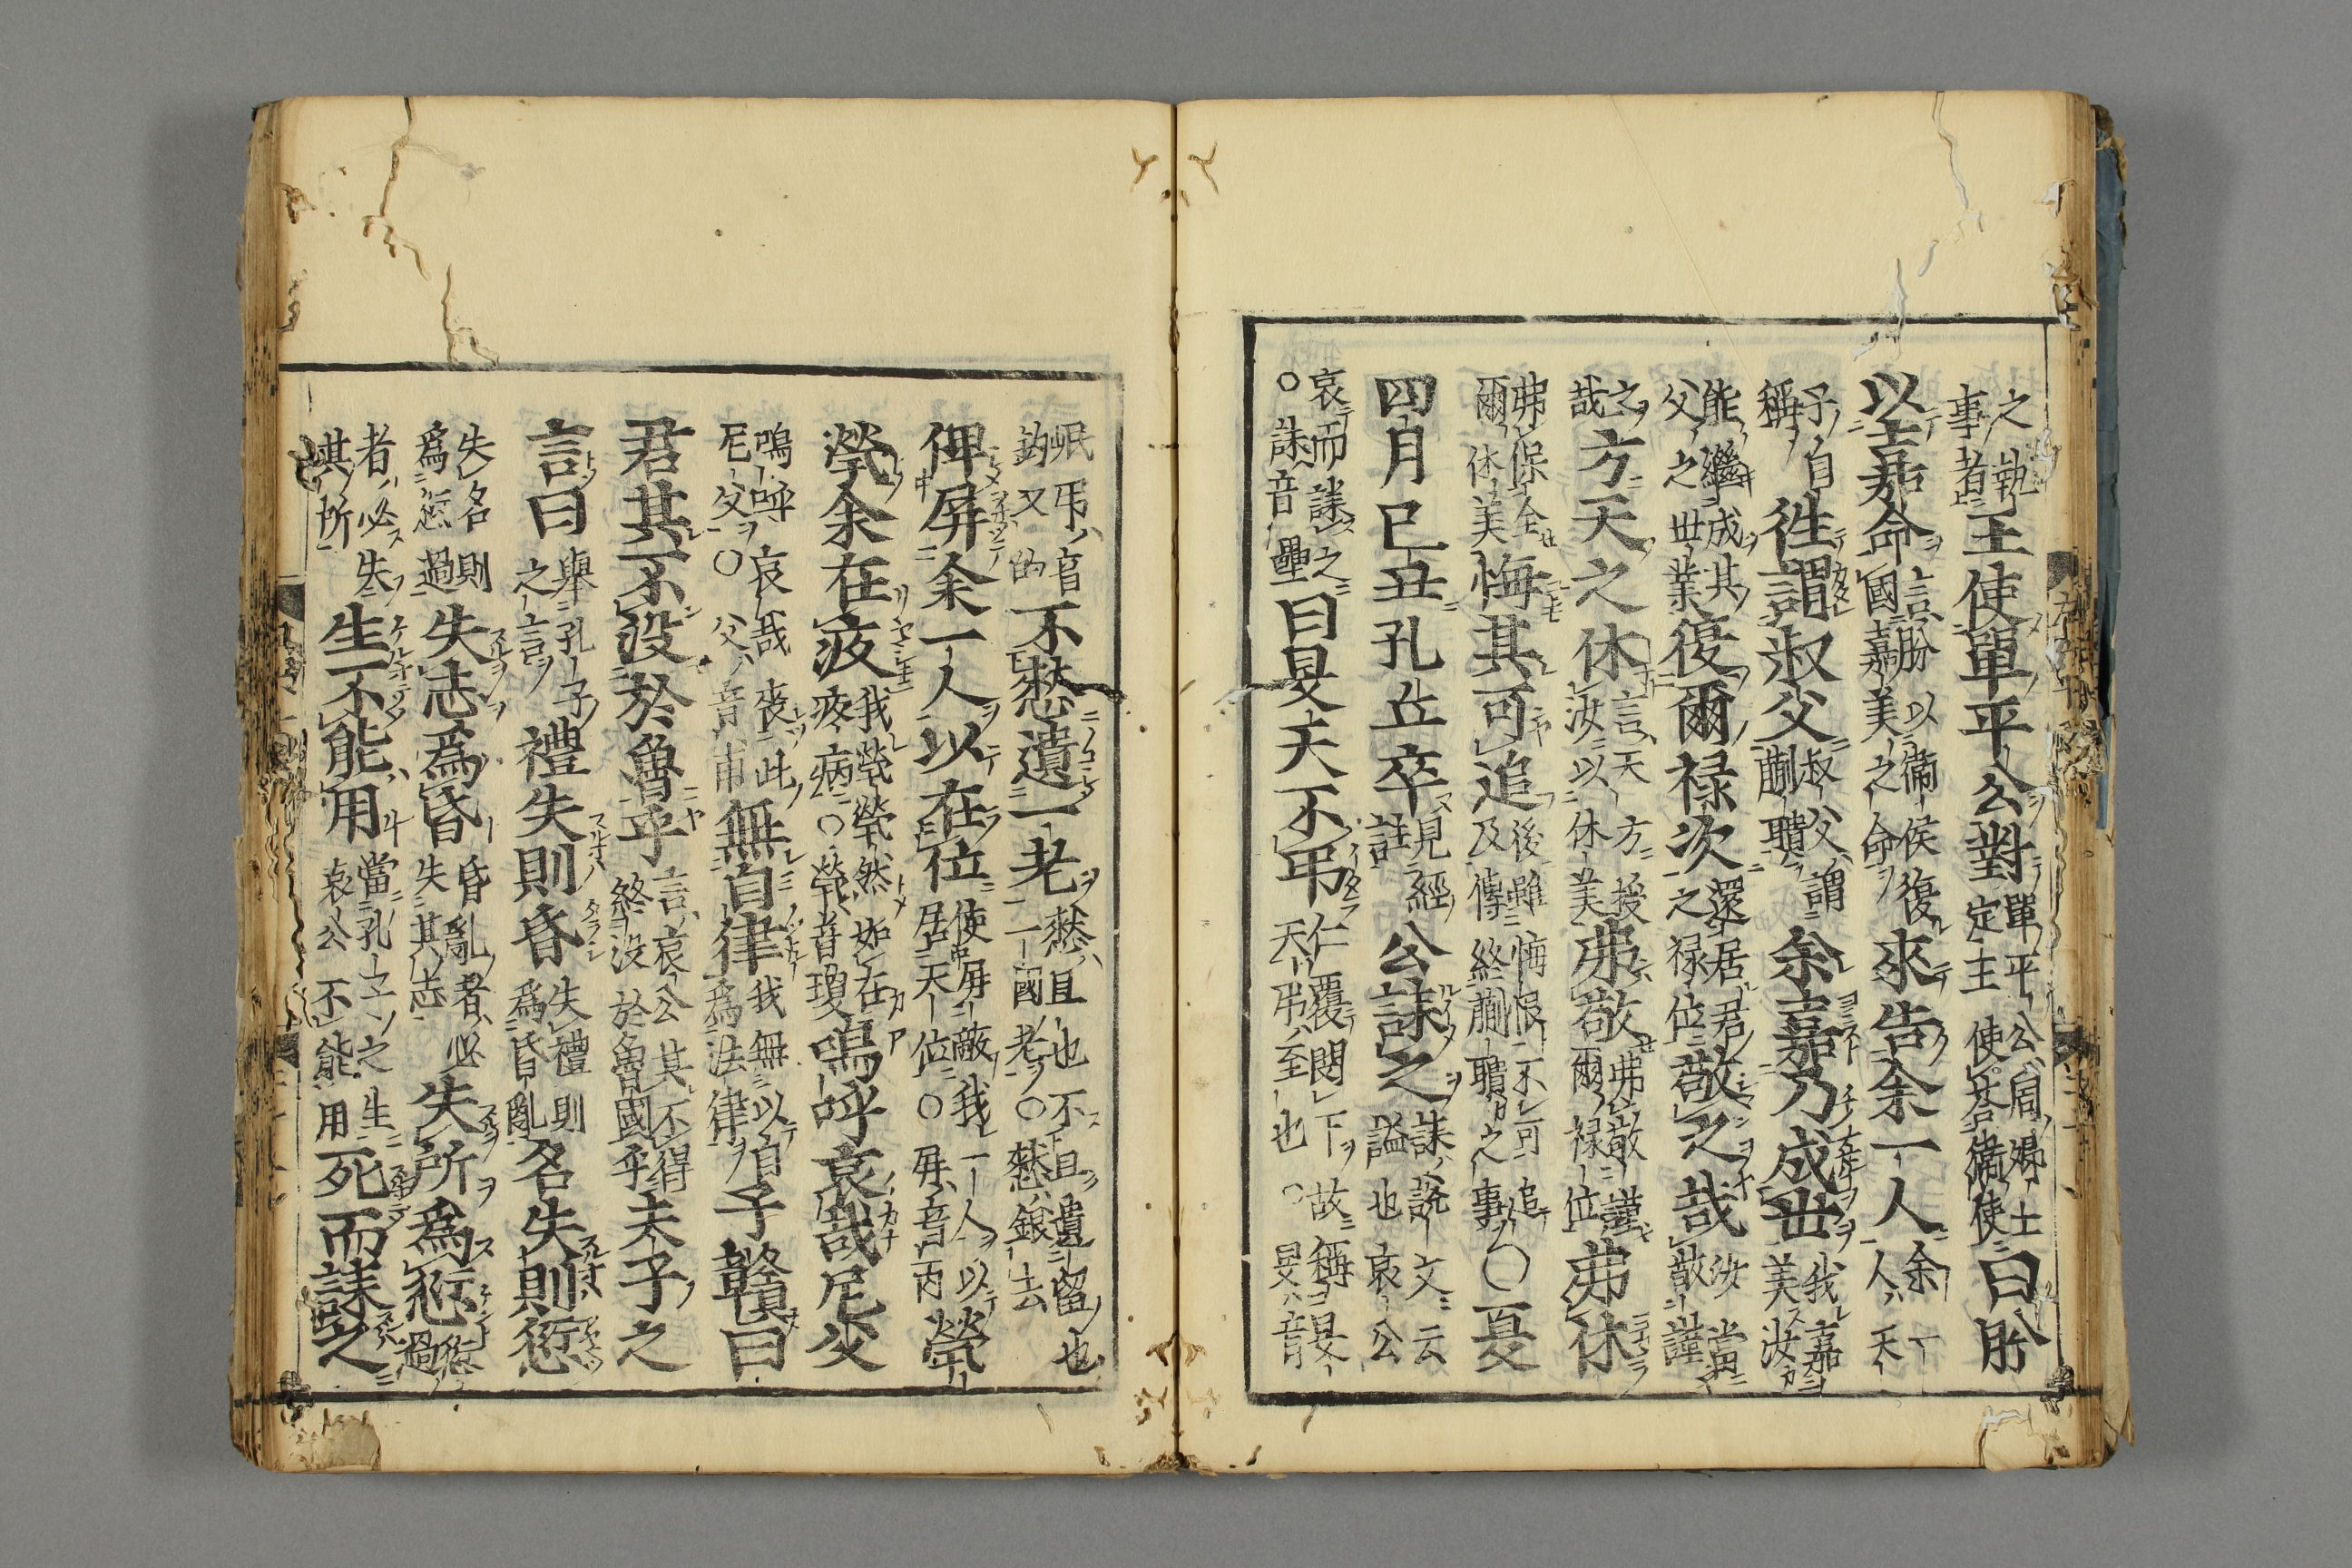 之執事者王使單平公對單平公周卿士定王使荅衛使曰肹
以嘉命言肹以衛侯復國嘉美之命來告余一人余一人天
子自稱往謂叔父叔父謂蒯聵余嘉乃成丗我嘉美汝
能繼成其父之丗業復爾禄次還居君之禄位敬之哉汝當敬謹
之哉方天之休言天方授汝以休美弗敬弗敬謹爾禄位弗休
弗保全爾休美悔其可追後雖悔恨不可追及傳終蒯聵之事○夏
四月己丑孔丘卒見經註公誄之誄說文云謚也哀公
哀而誄之○誄音壘曰旻天不弔仁覆閔下故稱旻天弔至也○旻音
岷弔音鈞又的不憖遺一老憖且也不且遺留一國老○憖銀去也
俾屏余一人以在位使屏蔽我一人以居天位○屏音丙煢
煢余在疚我煢煢然如在疚病○煢音瓊嗚呼哀哉尼父
嗚呼哀哉喪此尼父○父音甫無自律我無以自為法律子贛曰
君其不没於魯乎言哀公其不得終没於魯國乎夫子之
言曰舉孔子之言禮失則昏失禮則為昏亂名失則愆
失名則為愆過失志爲昏昏亂者必失其志失所爲愆愆過
者必失其所生不能用當孔子之生哀公不能用死而誄之